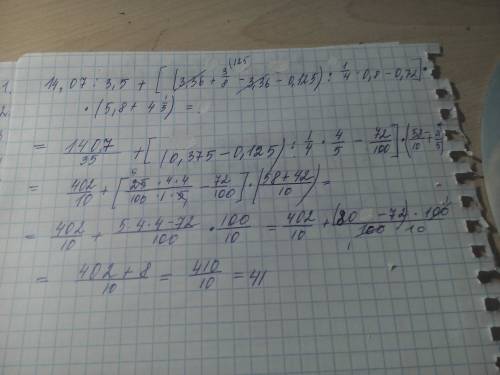 1.
14,07 : 3,5 + [ (3,56 + 3/8 - 3,56 - 0,125) : 1/4 · 0,8 - 0,72 ] ·
2
· (5,8 + 4 1/5) =
= 140,7/35 + [ (0,375 - 0,125) : 1/4 · 4/5 - 72/100 ] · (
= 402/10 + [ 25/100 · 4·4/1· - 72/100 ] · (58+42/10) =
= 402/10 + 5·4·4-72/100 · 100/10 = 402/10 + (80 - 72) · 100/100 10
= 402 + 8/10 = 410/10 = 41